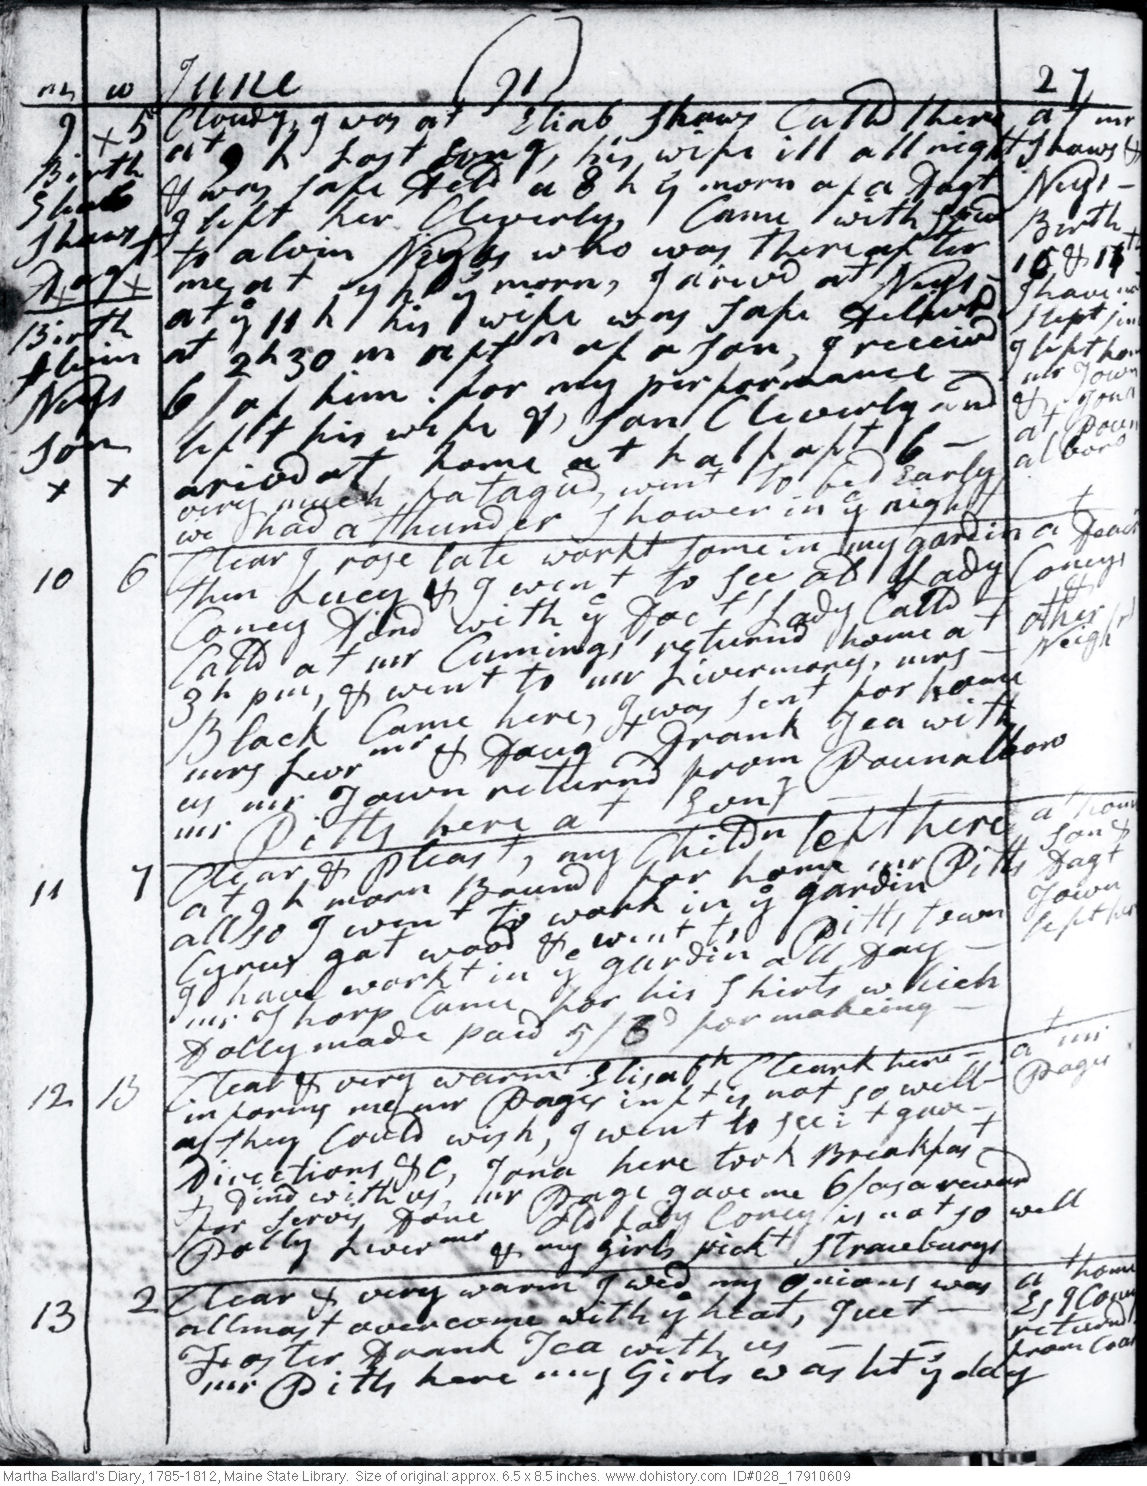 m w June (91) 27
9 x 5 Cloudy, I was at Eliab Shaws Calld there at mr
Birth at 9 h Last Evng, his wife ill all night Shaws &
Eliab & was safe Deld a 8 h ÿ morn of a Dagt Neys
Shaws I left her Cleverly, Came with speed Birth
to alvin Neyss who was there after 10 & 11th
Dagt x x me at 7 h ÿ morn, I arivd at Neys I have not
Birth at ÿ 11 h his wife was safe Delivrd slept sin
Alvin at 2 h 30 m aftn of a son, I receivd I left hom
Neys 6/ of him for my performance mr Town
left his wife & son Cleverly and & Jona
Son arivd at home at half aft 6 at Pown
x x very much fatagud, went to bed Early alboro
we had a thunder shower in ÿ night
10 6 Clear I rose late workt some in my gardin a Deacn
then Lucy & I went to see old Lady Coneys
Coney Dind with ÿ Doct Lady Calld &
Calld at mr Cumings returnd home at other
3 h pm, & went to mr Livermores, mrs Neighbr
Black Came here, I was sent for home
mrs Livrmr & Daug Drank Tea with
us mr Town returnd from Pounalboro
mr Pitts here at Evng
11 7 Clear & Pleast, my Childn left here at home
at 9 h morn Bound for home mr Pitts son &
allso I went to work in ÿ gardin Dagt
Cyrus gat wood & went to Pittstown Town
I have workt in ÿ gardin all Day left here
mr Thorp Came for his Shirts which
Dolly made paid 5/6d for makeing
12 13 Clear & very warm Elisath Cleark here a mr
informs me mr Pages inft is not so well Pages
as they Could wish, I went to see it gave
Directions &C, Jona here took Breakfast
& Dind with us, mr Page gave me 6/ as a reward
for Servis Done Old Lady Coney is not so well
Dolly Livermr & my girls pickt Strawburys
13 2 Clear & very warm I wed my onions was at home
allmost overcome with ÿ heat, Juet Esq Cony
Foster Drank Tea with us returnd
mr Pitts here my Girls washt ÿ day from Court
Martha Ballard's Diary, 1785-1812, Maine State Library. Size of original: approx. 6.5 x 8.5 inches. www.dohistory.com ID#028_17910609